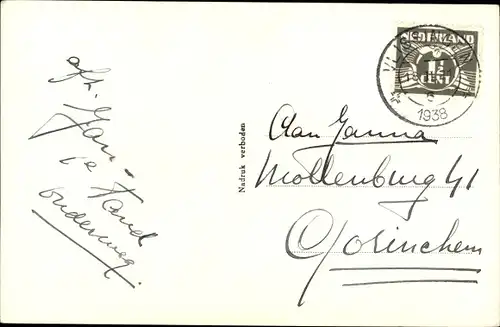 NEDERLAND
1½
CENT
VLISSINGEN
1938
Nadruk verboden
Aan Janna
Mollenburg 41
Gorinchem
afz. Jan
onderweg.